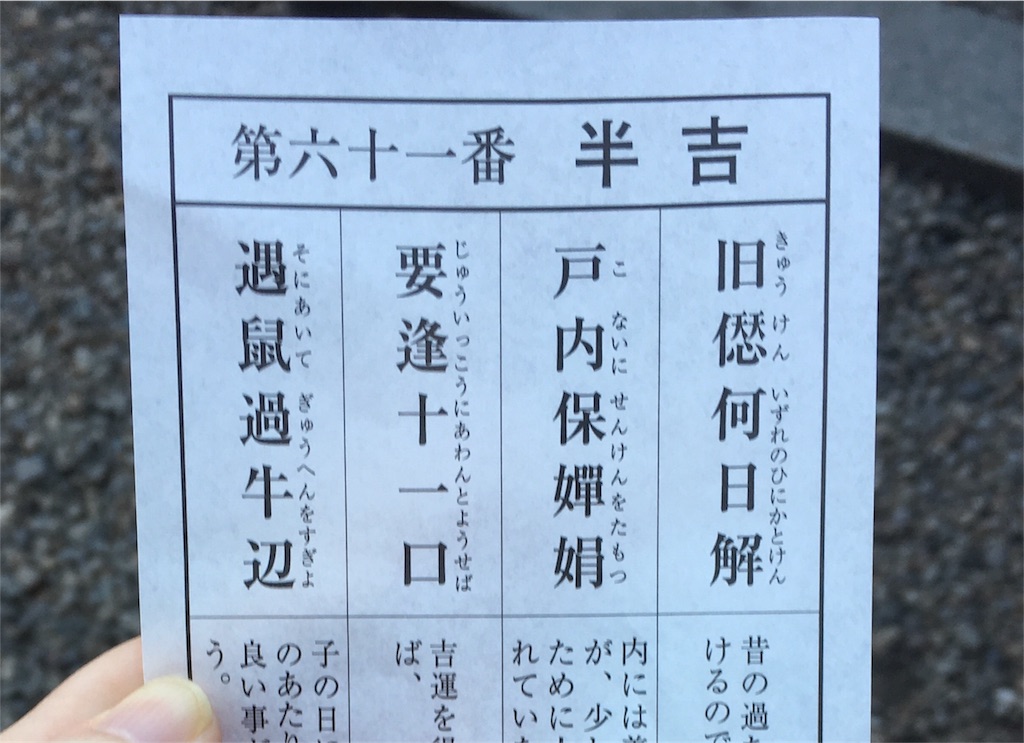 第六十一番 半吉
旧愆何日解
きゅう けん いずれのひにかとけん
戸内保嬋娟
こ ないに せんけんをたもつ
要逢十一口
じゅういっこうにあわんとようせば
遇鼠過牛辺
そにあいて ぎゅうへんをすぎよ
昔の過
けるので
内には
が、少
ために
れてい
吉運を
ば、
子の日に
のあたり
良い事
う。